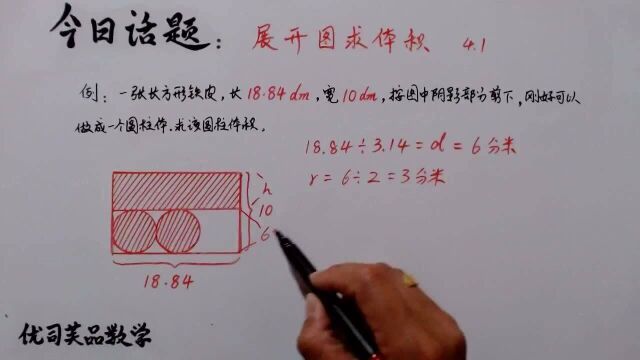 今日话题：展开图求体积 4.1
例：一张长方形铁皮，长18.84dm，宽10dm，按图中阴影部分剪下，刚好可以
做成一个圆柱体，求该圆柱体积。
18.84÷3.14=d=6分米
r=6÷2=3分米
h
10
6
18.84
优司芙品数学